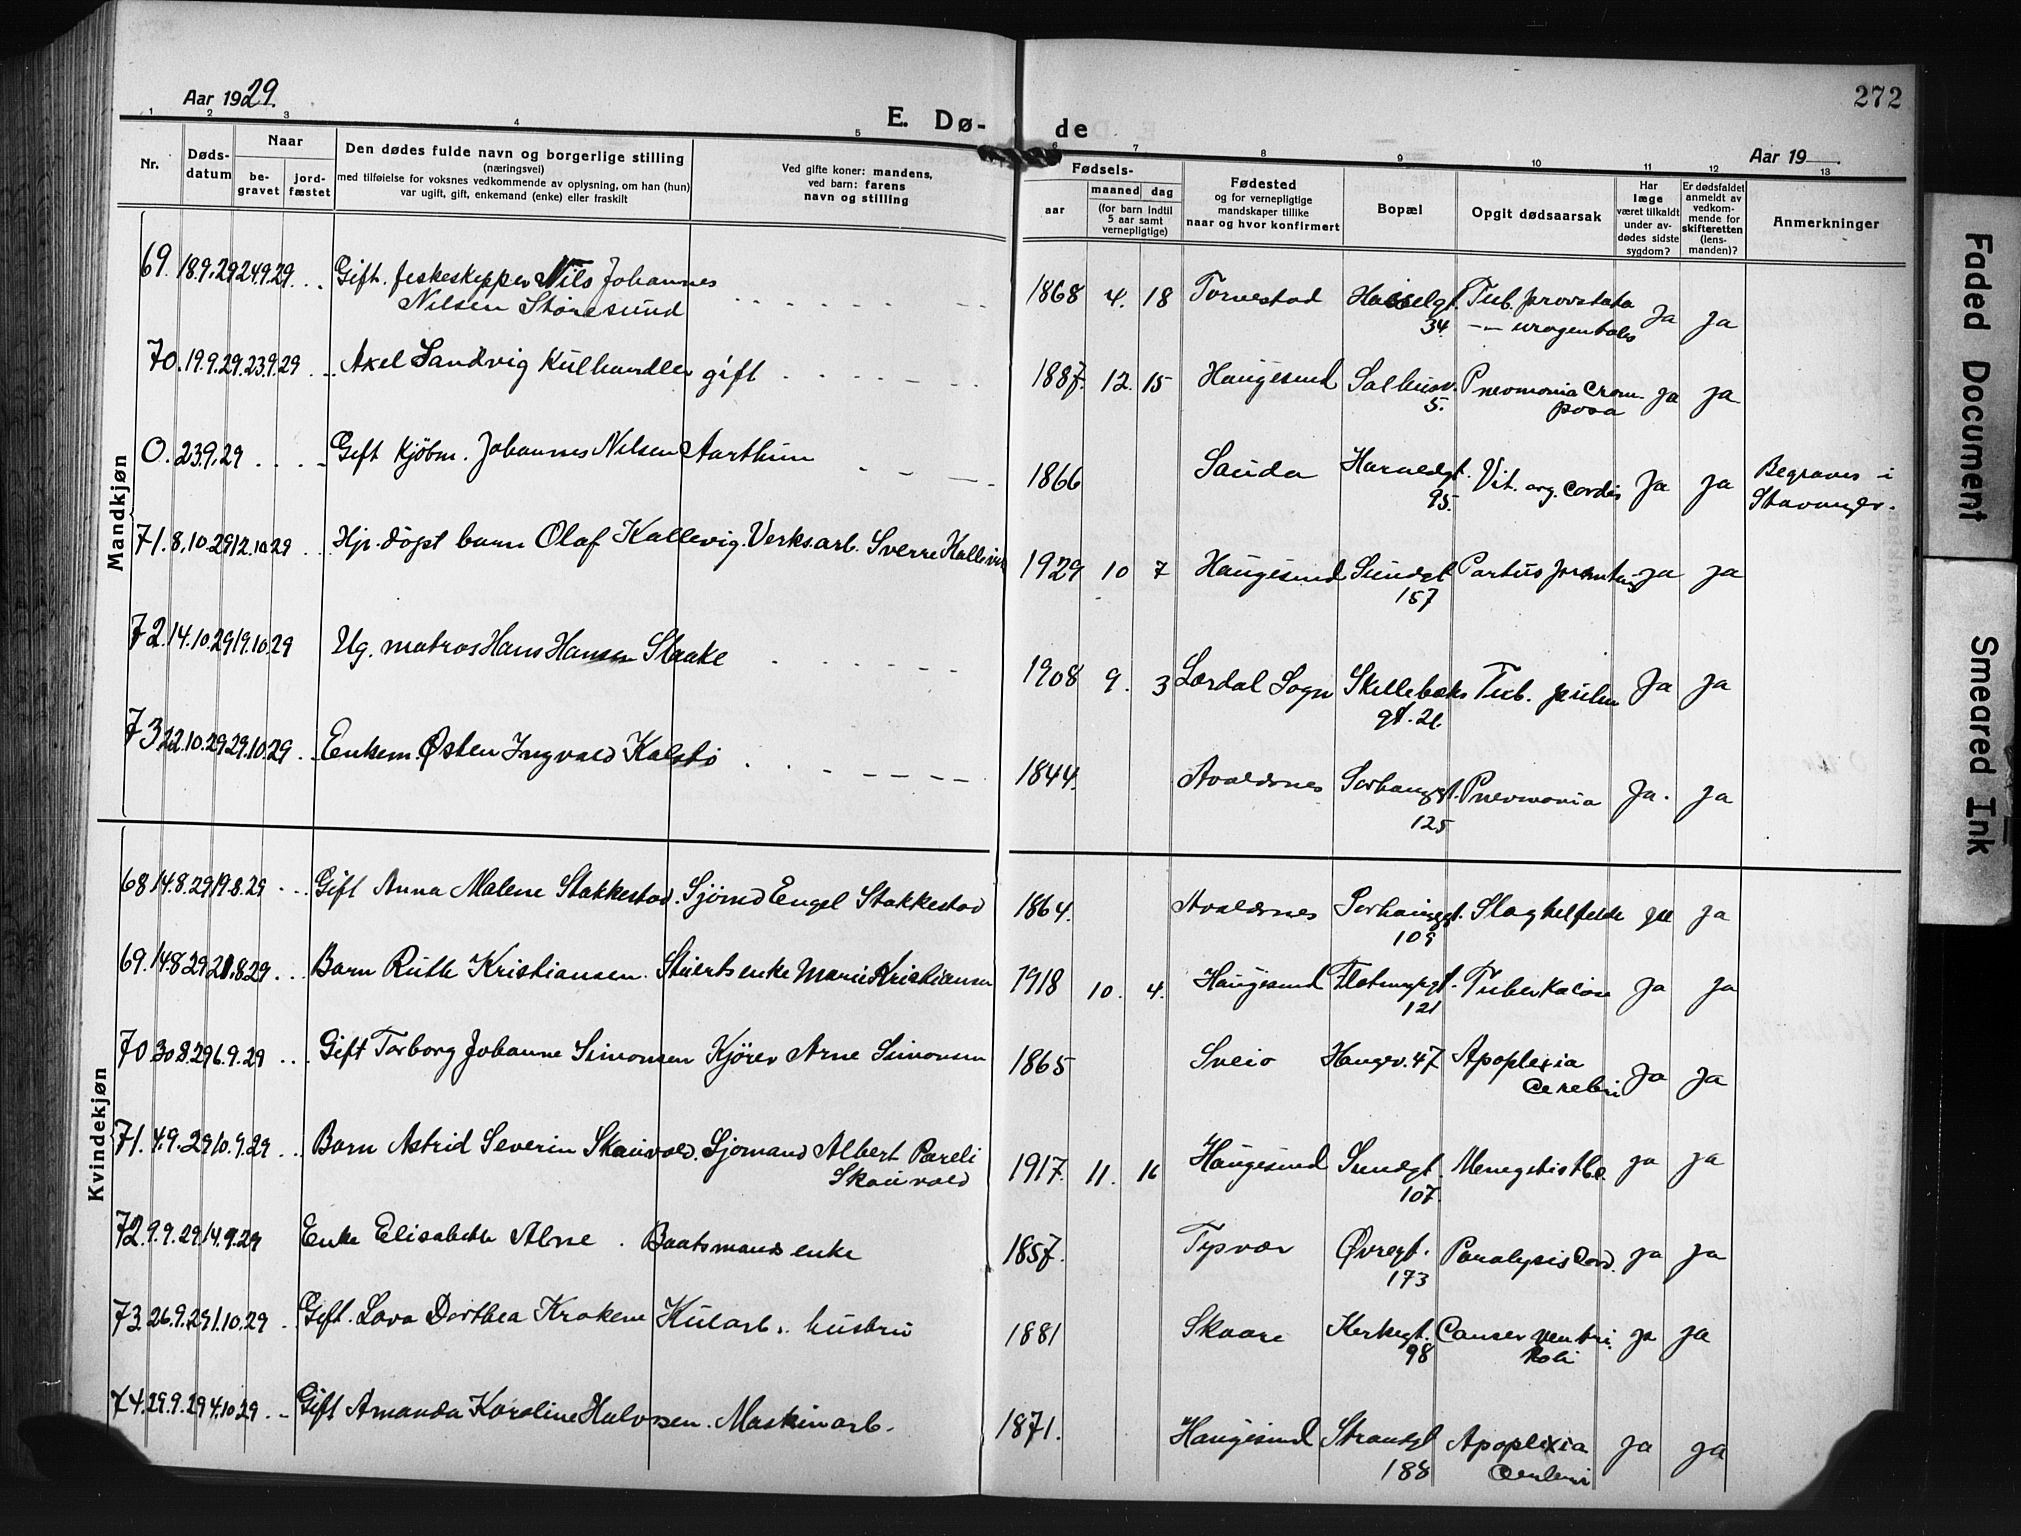 Aar 1929.
E. Dø-
de
272
Aar 19
1 2 3 4 5 6 7 8 9 10 11 12 13
Nr.
Døds-
datum
Naar
be-
gravet
jord-
fæstet
Den dødes fulde navn og borgerlige stilling
(næringsvei)
med tilføielse for voksnes vedkommende av oplysning, om han (hun)
var ugift, gift, enkemand (enke) eller fraskilt
Ved gifte koner: mandens,
ved barn: farens
navn og stilling
Fødsels-
aar
maaned dag
(for barn indtil
5 aar samt
vernepligtige)
Fødested
og for vernepligtige
mandskaper tillike
naar og hvor konfirmert
Bopæl
Opgit dødsaarsak
Har
læge
været tilkaldt
under av-
dødes sidste
sygdom?
Er dødsfaldet
anmeldt av
vedkom-
mende for
skifteretten
(lens-
manden)?
Anmerkninger
Mandkjøn
69. 18.9.29 24.9.29 Gift. fiskeskipper Nils Johannes 1868 4. 18 Torvestad Hasselgt. Tub. prostata Ja Ja
Nilsen Storesund 34. -"- urogentales
70. 19.9.29. 23.9.29 Axel Sandvig Kulhandler gift 1887. 12. 15 Haugesund Salhusv. Pneomonia Crou- Ja Ja
5. posa
0. 23.9.29 Gift Kjøbm. Johannes Nilsen Aarthun 1866 Sauda Haraldgt. Vit. org. Cordis Ja Ja Begraves i
95. Stavanger.
71. 8.10.29 12.10.29 Hj. døpt barn Olaf Kallevig. Verksarb. Sverre Kallevig 1929 10 7 Haugesund Sundgt Partus Ja Ja
157
72. 14.10.29 19.10.29 Ug. matros Hans Hansen Slaake 1908 9. 3 Lærdal Sogn Skillebæks Tub. pulm Ja Ja
gt. 21.
73 22.10.29 29.10.29 Enkem. Østen Ingvald Kalstø 1844. Avaldsnes Sørhauggt. Pnevmonia Ja. Ja
125
Kvindekjøn
68 14.8.29 19.8.29 Gift Anna Malene Stakkestad. Sjømd Engel Stakkestad 1864. Avaldsnes Sørhauggt. Slagtilfelde Ja
109
69. 14.8.29 21.8.29 Barn Ruth Kristiansen. Stuertsenke Marie Kristiansen 1918 10. 4. Haugesund Flotmyrgt. Tuberkulose Ja Ja
121
70 30.8.29 6.9.29 Gift Torborg Johanne Simonsen Kjører Arne Simonsen 1865 Sveio Haugev. 47 Apoplexia Ja Ja
Cerebri
71. 4.9.29 10.9.29 Barn Astrid Severin Skauvold. Sjømand Albert Pareli 1917. 11. 16 Haugesund Sundgt. Ja Ja
Skauvold 107.
72. 9.9.29 14.9.29 Enke Elisabeth Alne. Baatsmands enke 1857. Tysvær Øvregt. Paralysis Cord. Ja Ja
173
73. 26.9.29 1.10.29 Gift. Lova Dorthea Krakene Kularb. hustru 1881 Skaare Kirkegt. Canser ventri- Ja Ja
98 koli
74. 29.9.29 4.10.29 Gift Amanda Karoline Halvorsen. Maskinarb. 1871. Haugesund Strandgt Apoplexia Ja Ja
188 Cerebri
Faded Document
Smeared Ink